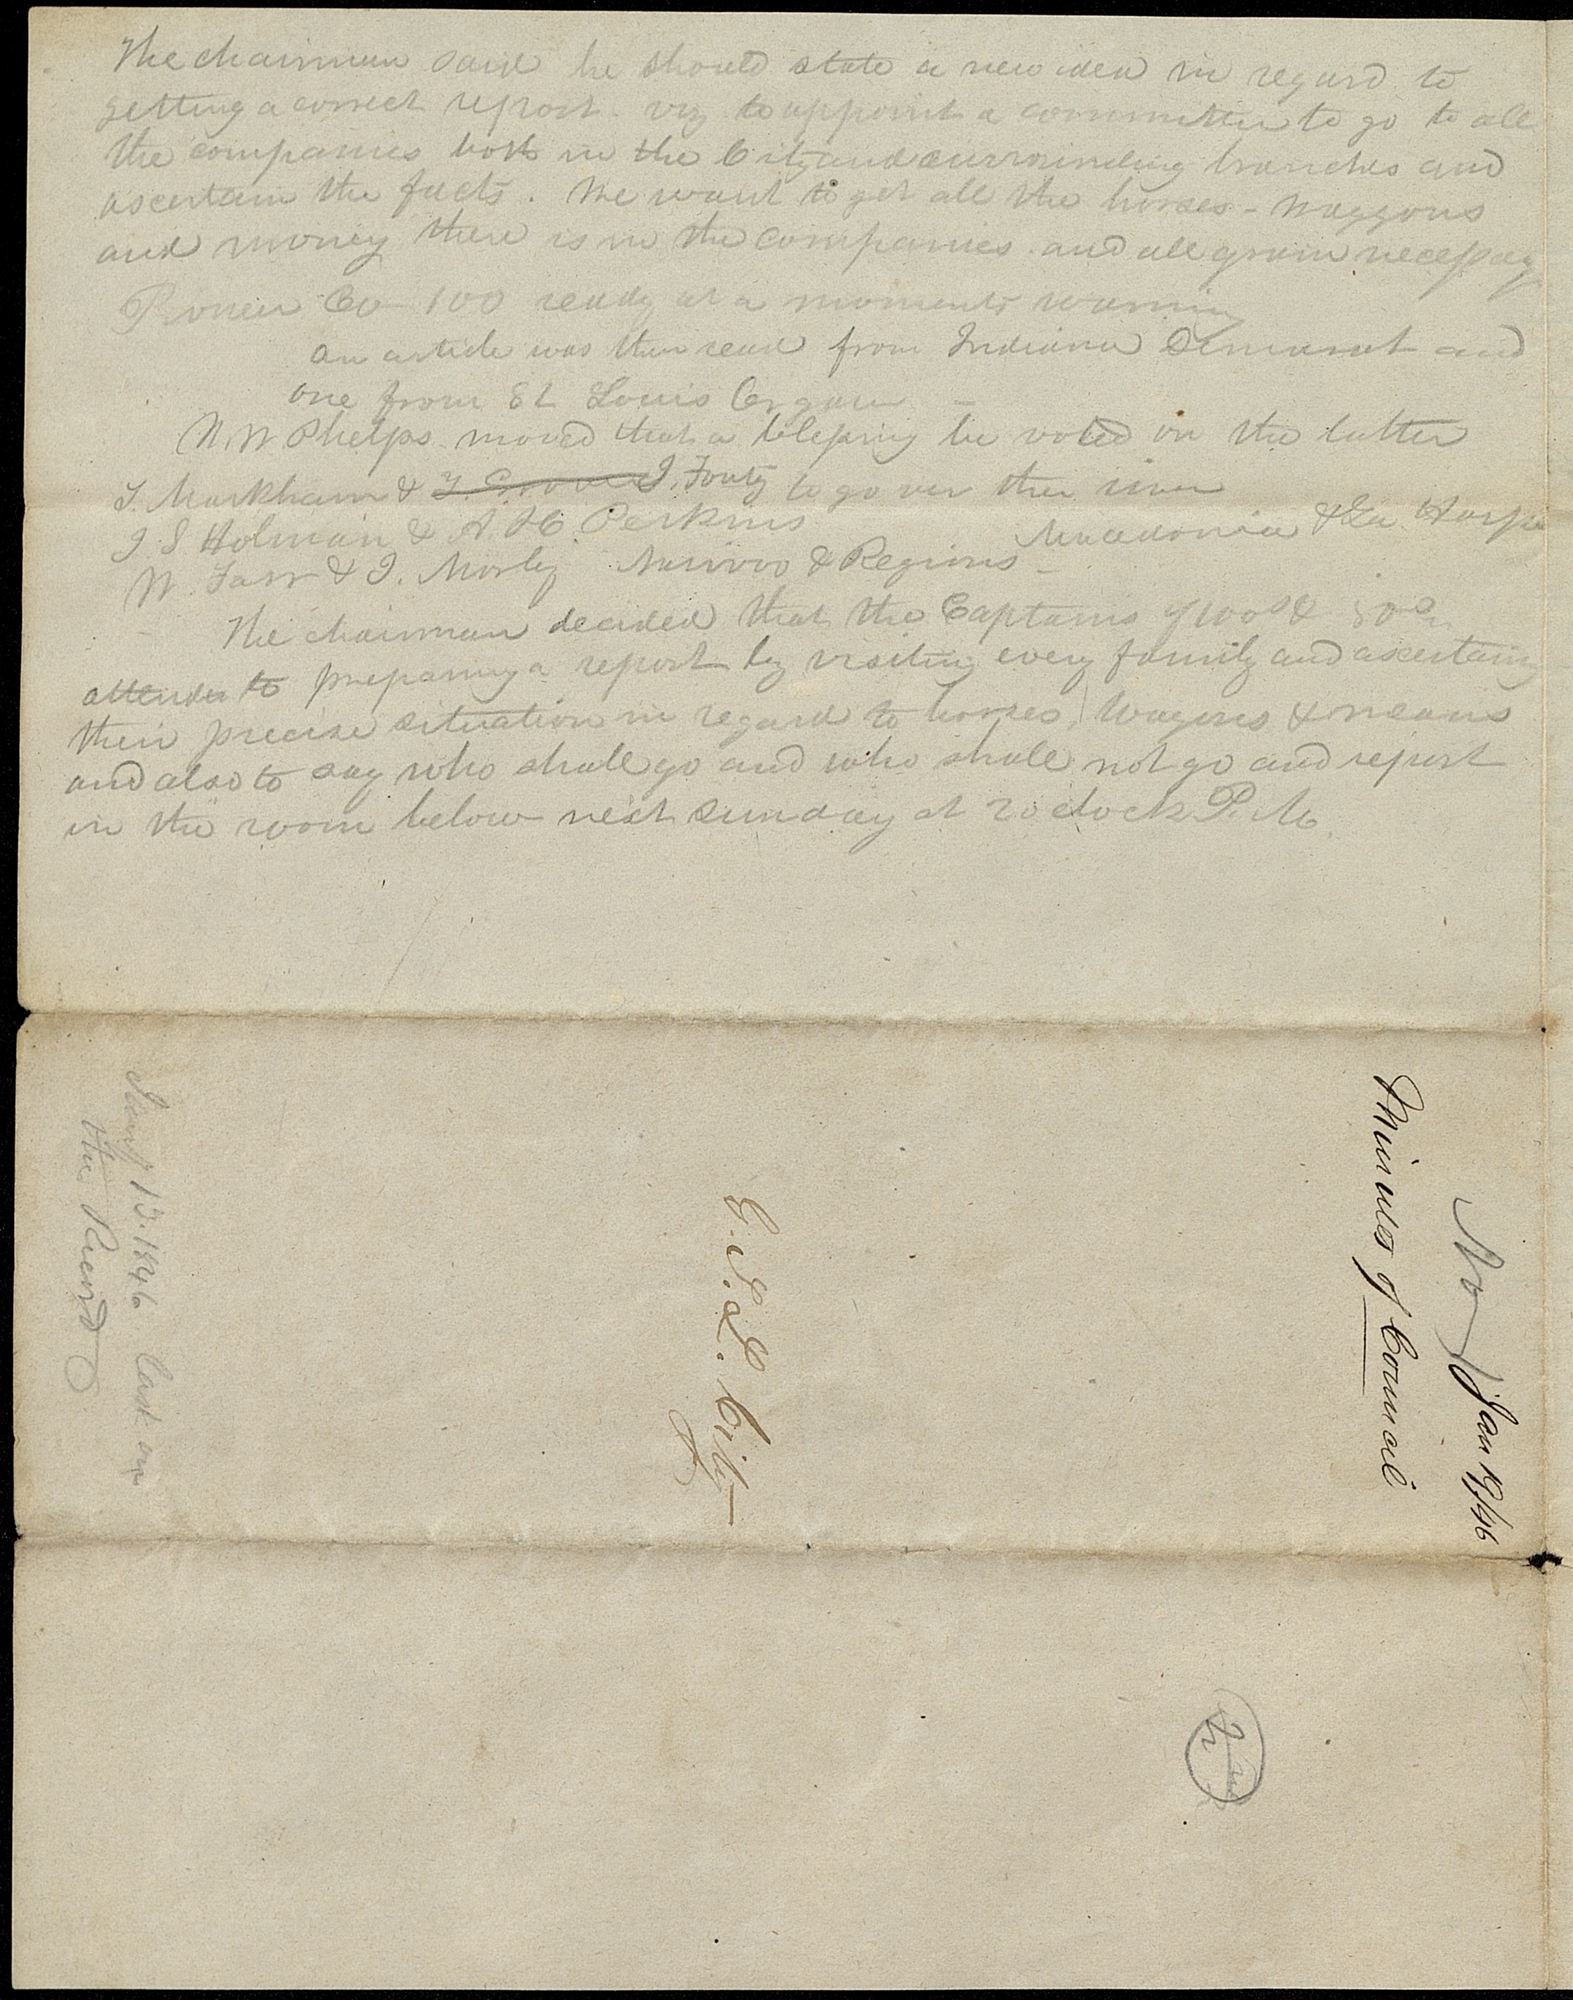 The chairman said he should state a new idea in regard to
getting a correct report. viz to appoint a committee to go to all
the companies both in the City and surrounding branches and
ascertain the facts. We want to get all the horses - Waggons
and money there is in the companies and all grain necessary
Pioneer Co 100 ready at a moments warning
an article was then read from Indiana Democrat and
one from St Louis Organ —
W. W Phelps moved that a blessing be voted on the latter
S. Markham & J. Fouty to go over the river
J. S Holman & A. H. Perkins Macedonia & La Harpe
W. Farr & I. Morley Nauvoo & Regions —
The chairman decided that the Captains of 100s & 50s
attend to preparing a report by visiting every family and ascertaining
their precise situation in regard to horses, Wagons & means
and also to say who shall go and who shall not go and report
in the room below next Sunday at 2 o clock P. M.
No Jan 13/46
Minutes of Council
G. S. L. City
Jany 13. 1846. last on
the Record